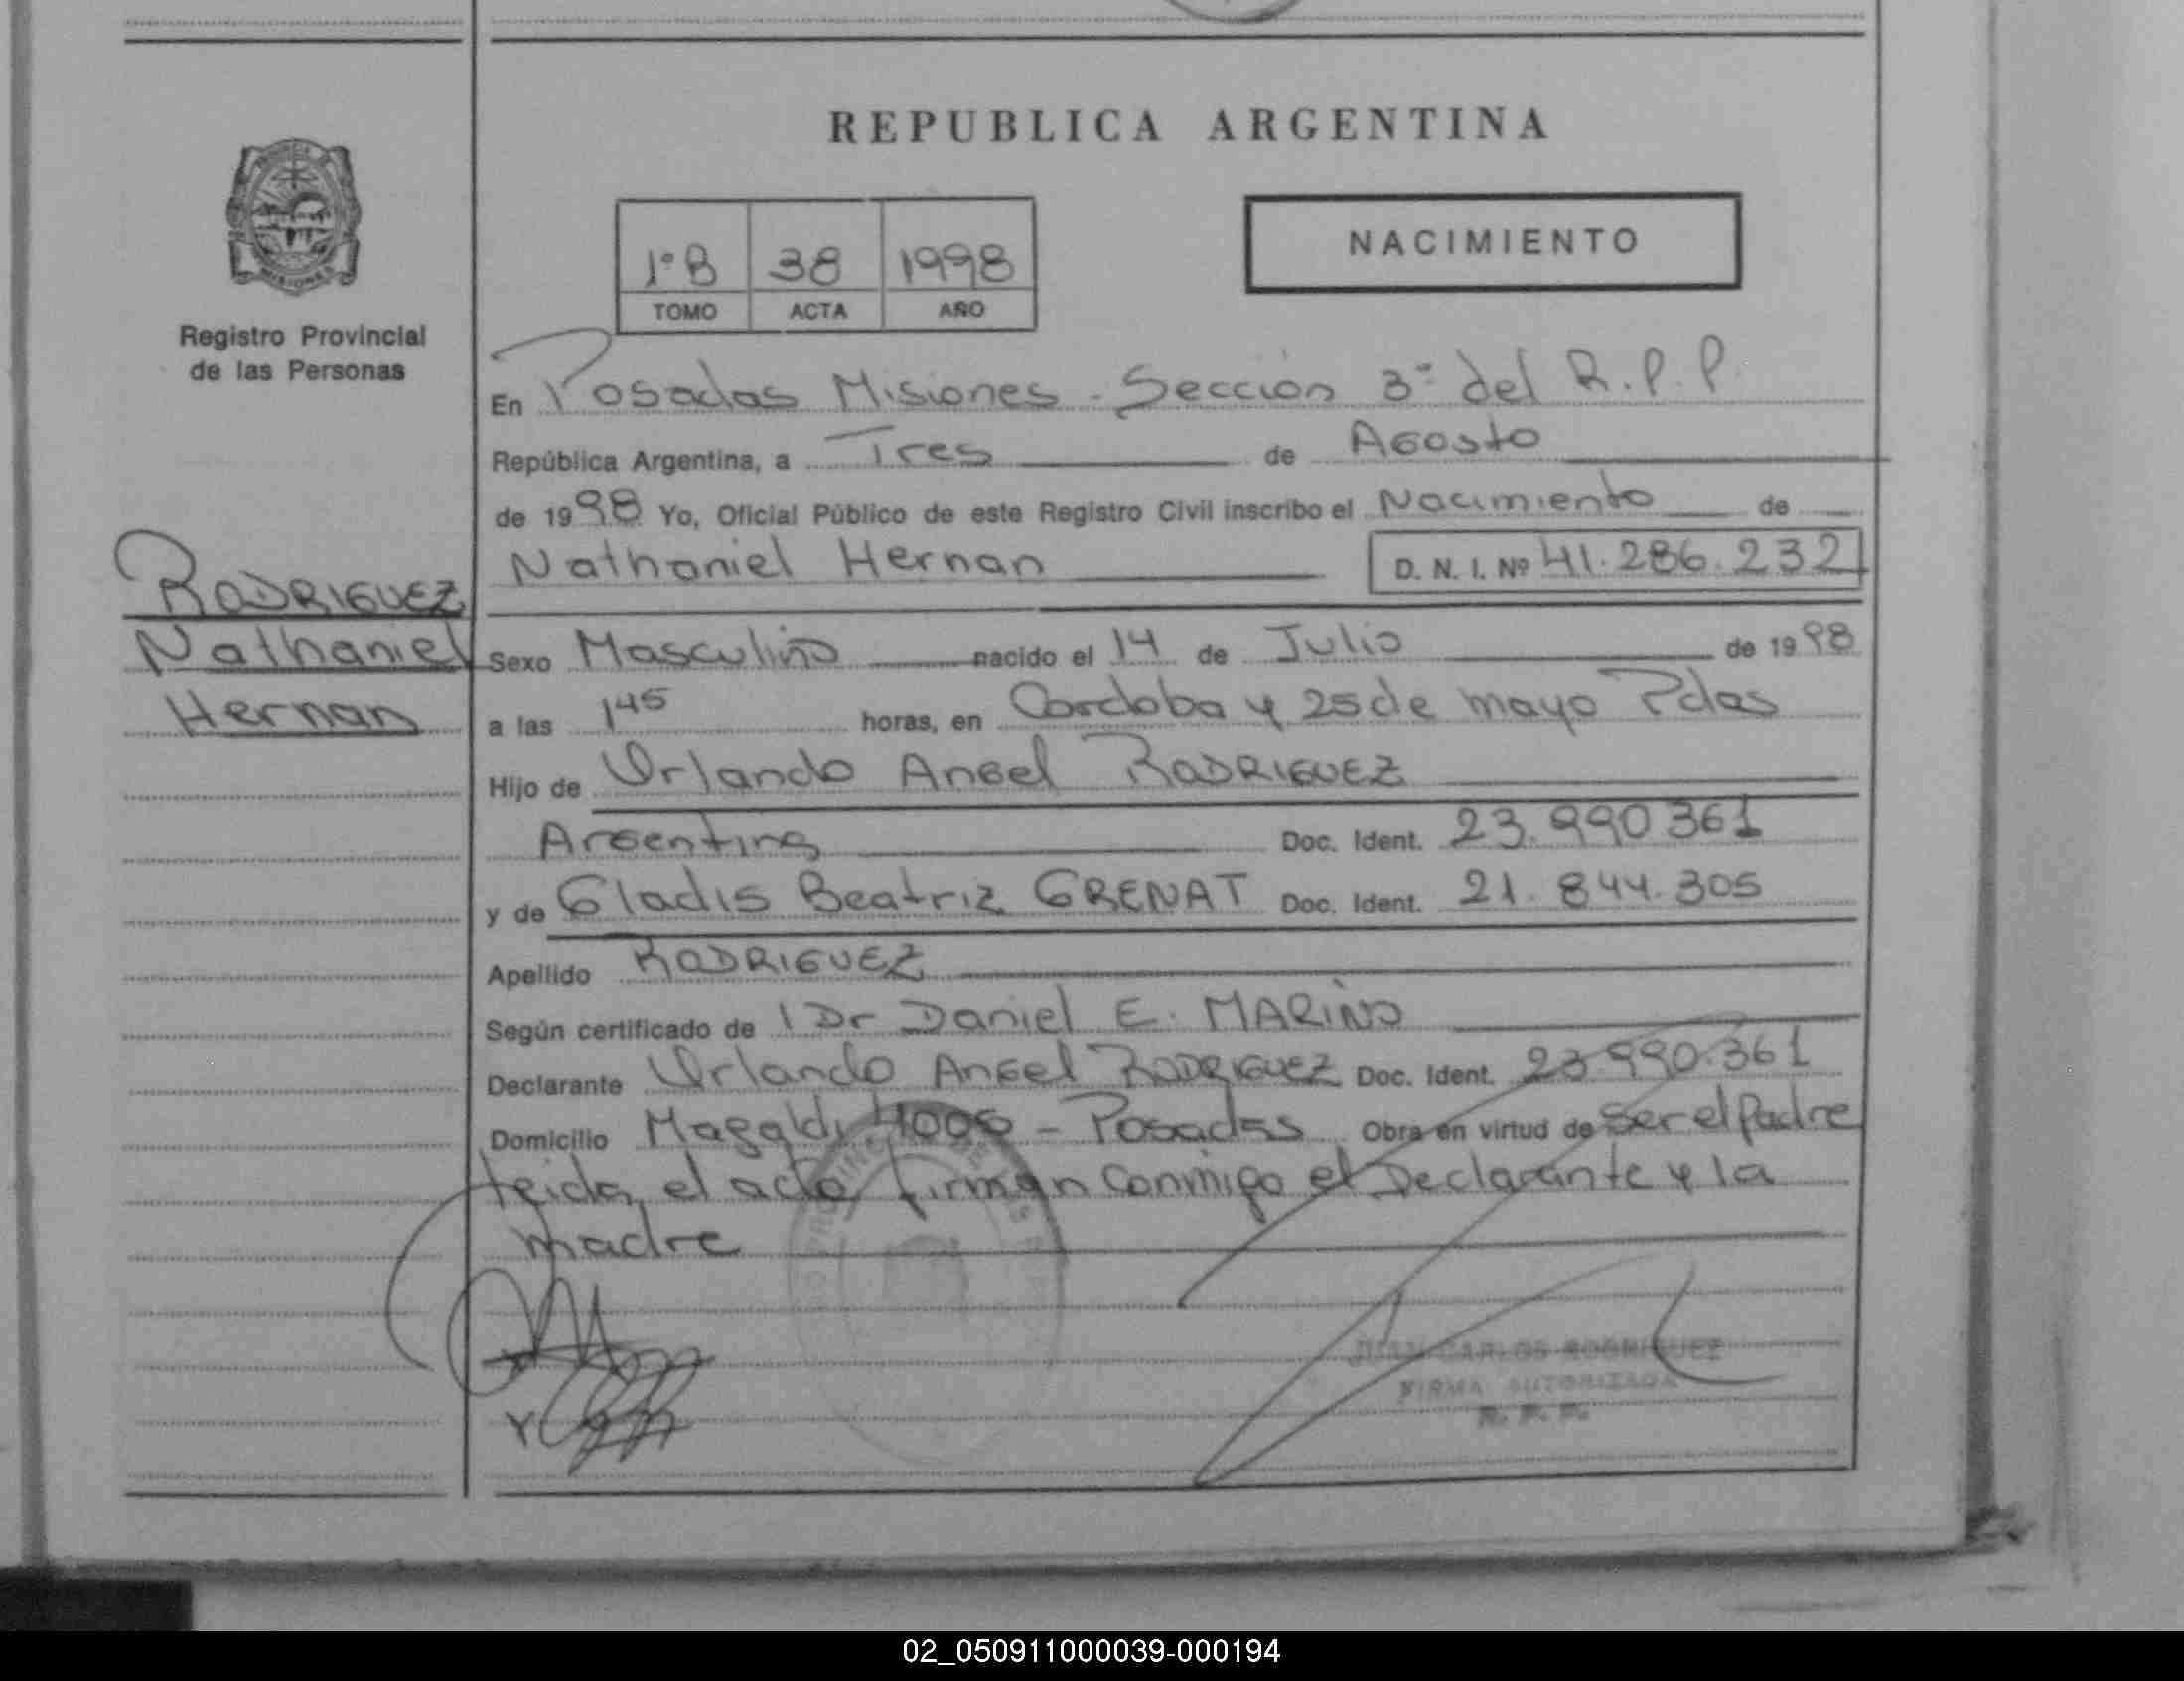 REPUBLICA ARGENTINA
1º B 38 1998
TOMO ACTA AÑO
NACIMIENTO
MISIONES
Registro Provincial
de las Personas
RODRIGUEZ
Nathaniel
Hernan
En Posadas Misiones - Sección 3ª del R.P.P.
República Argentina, a Tres de Agosto
de 1998 Yo, Oficial Público de este Registro Civil inscribo el Nacimiento de
Nathaniel Hernan D. N. I. Nº 41.286.232
Sexo Masculino nacido el 14 de Julio de 1998
a las 1 45 horas, en Cordoba y 25 de mayo Pdas
Hijo de Orlando Angel RODRIGUEZ
Argentina Doc. Ident. 23.990361
y de Gladis Beatriz GRENAT Doc. Ident. 21.844.305
Apellido RODRIGUEZ
Según certificado de Dr Daniel E. MARIÑO
Declarante Orlando Angel RODRIGUEZ Doc. Ident. 23.990.361
Domicilio Magaldi - Posadas Obra en virtud de Ser el Padre
leida el acta firman conmigo el Declarante y la
madre
JUAN CARLOS RODRIGUEZ
FIRMA AUTORIZADA
R. P. P.
02_050911000039-000194